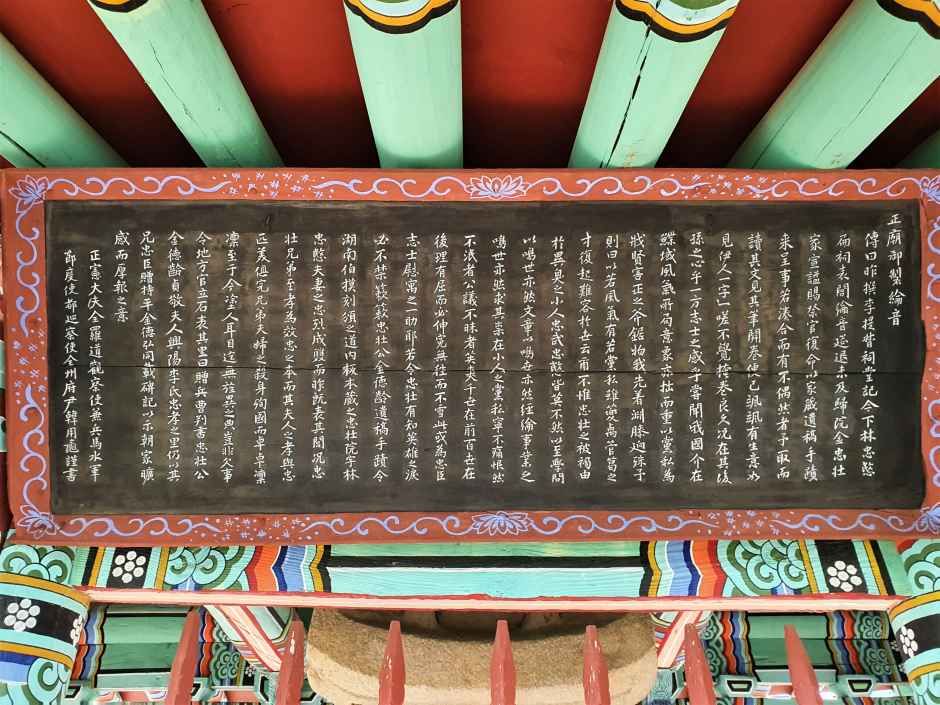 正廟御製綸音
傳曰昨撰李提督祠堂記今下林忠愍
兩祠表閭綸音筵退未及歸院金忠壯
家宣謚賜祭官復命以家藏遺稿手蹟
來呈事若湊合而有不偶然者予取而
讀其文見其筆開卷伸已颯颯有生意如
見伊人一字一嗟不覺掩卷良久况在其後
孫之心乎一方志士之感乎嘗聞我國介在
鰈域風氣所局意象亦拙而重以黨私為
戕賢害正之斧鉞物我先着湖膝廻珠于
則曰以若風氣有若黨私雖管葛之
才復起難容於世云爾不惟忠壯之被禍由
於異己之小人忠武忠愍皆莫不然以至學問
以鳴世亦然文章以鳴世亦然經綸事業之
鳴世亦然求其祟在小人之黨私寧不痛恨然
不泯者公議不昧者英爽千世在前百世在
後理有屈而必伸寃無往而不雪此或為忠臣
志士慰寓之一助耶若令忠壯有知英雄之淚
必不禁簌簌忠壯公金德齡遺稿手蹟令
湖南伯撲刻頒之道內板本藏之忠壯院宇林
忠愍夫妻之忠烈成雙而昨旣表其閭况忠
壯兄弟至孝為效忠之本而其夫人之孝與忠
匹美兄弟夫婦之殺身殉國而卓卓
凛至于今塗人耳目迄無旌異之典豈非欠事
令地方官立石表其里曰贈兵曹判書忠壯公
金德齡貞敬夫人興陽李氏忠孝之里仍以其
兄忠臣贈持平金德弘同載碑記以示朝家曠
感而厚報之意
正憲大夫全羅道觀察使兼兵馬水軍
節度使都巡察使全州府尹韓用龜謹書